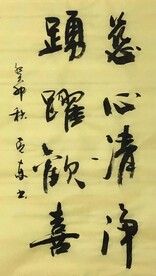 慈心清净
踊躍歡喜
癸卯秋
書